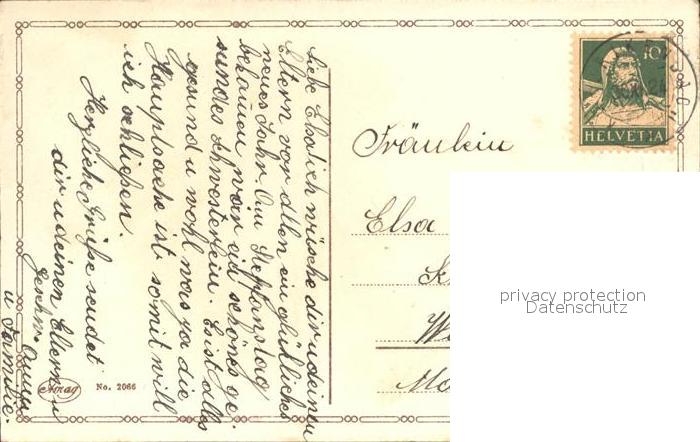 Liebe Elsa ich wünsche dir u deinen
Eltern vor allem ein glückliches
neues Jahr. Am Stephanstag
bekamen wir ein schönes ge
sundes Schwesterlein. Es ist alles
gesund u wohl was ja die
Hauptsache ist. somit will
ich schließen.
Herzliche Grüße sendet
dir u deinen Eltern u
Geschw. Anna
u Familie.
Fräulein
Elsa
HELVETIA
10
Amag No. 2066
privacy protection
Datenschutz